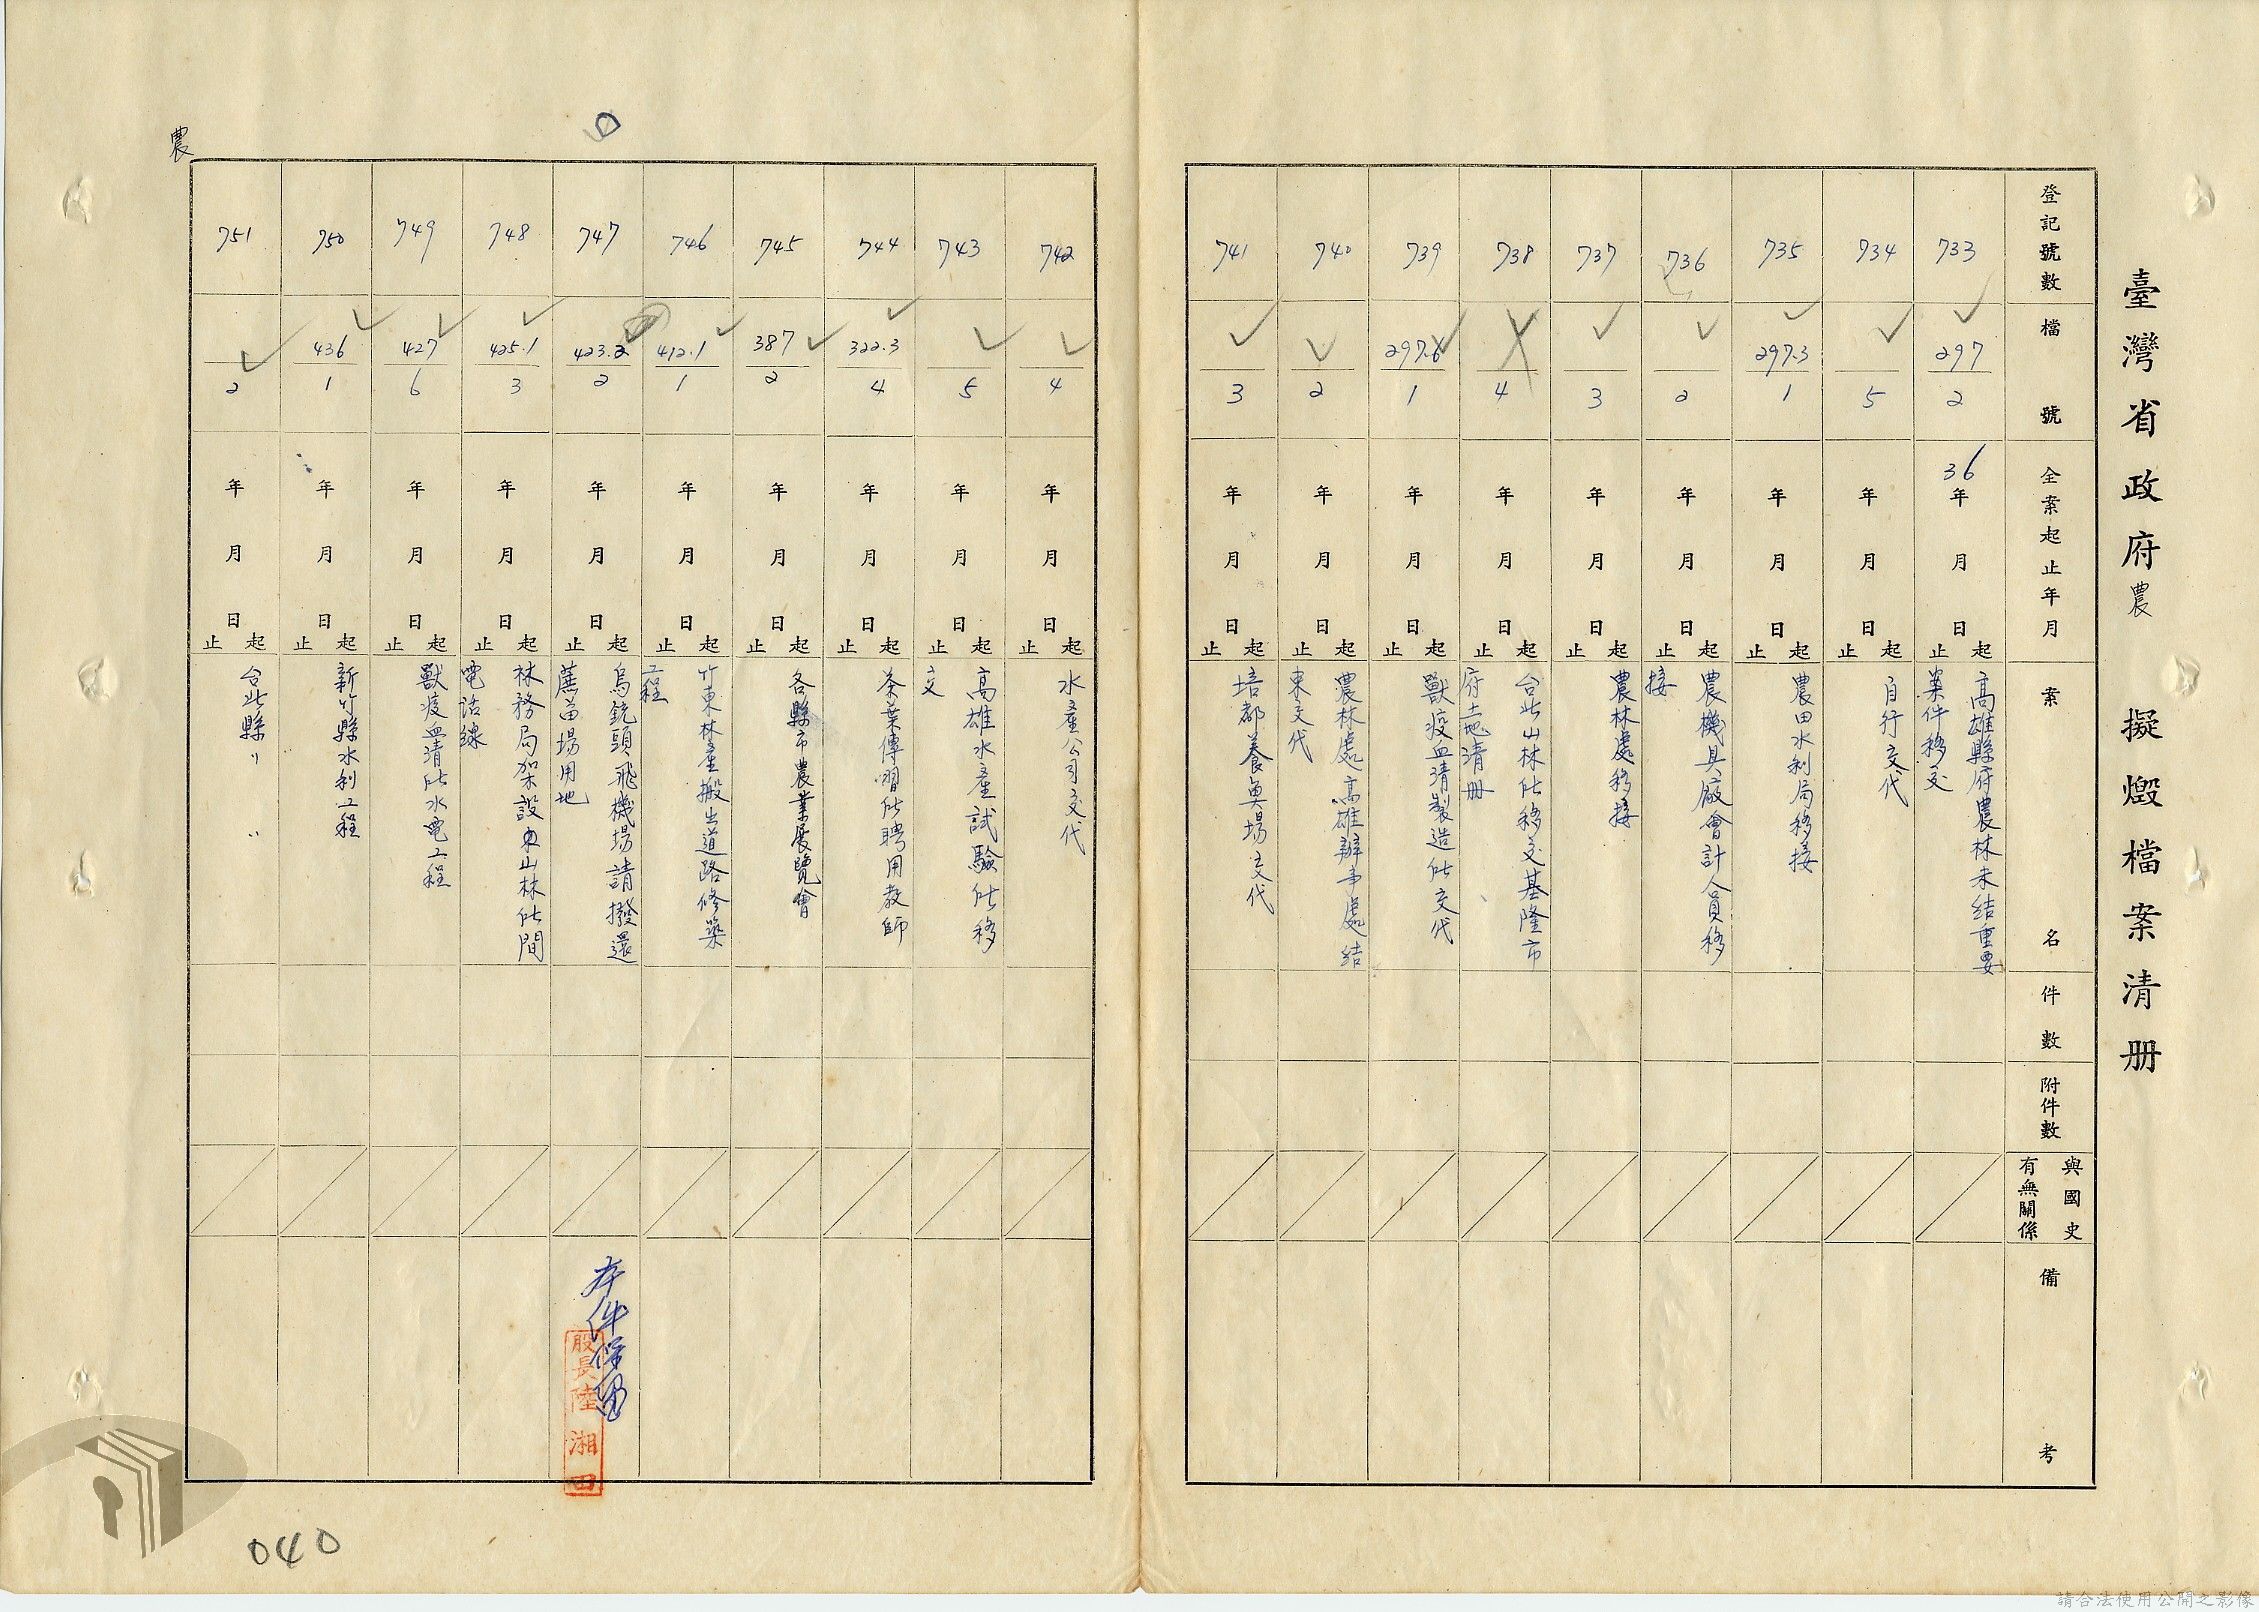 臺灣省政府農 擬燬檔案清册
登記號數
檔號
全案起止年月
案名
件數
附件數
與國史有無關係
備考
733
297
2
36年月日起止
高雄縣府農林未結重要
案件移交
734
5
年月日起止
自行交代
735
297.3
1
年月日起止
農田水利局移接
736
2
年月日起止
農機具廠會計人員移
接
737
3
年月日起止
農林處移接
738
4
年月日起止
台北山林所移交基隆市
府土地清册
739
297.6
1
年月日起止
獸疫血清製造所交代
740
2
年月日起止
農林處高雄辦事處結
束交代
741
3
年月日起止
培都養奠場交代
742
4
年月日起止
水產公司交代
743
5
年月日起止
高雄水產試驗所移
交
744
322.3
4
年月日起止
茶葉傳習所聘用教師
745
387
2
年月日起止
各縣市農業展覽會
746
412.1
1
年月日起止
竹東林產搬出道路修築
工程
747
423.2
2
年月日起止
烏銃頭飛機場請撥還
蔗苗場用地
本件保留
股長陸湘田
748
425.1
3
年月日起止
林務局架設東山林所間
電話線
749
427
6
年月日起止
獸疫血清所水電工程
750
436
1
年月日起止
新竹縣水利工程
751
2
年月日起止
台北縣〃 〃
農
040
請合法使用公開之影像